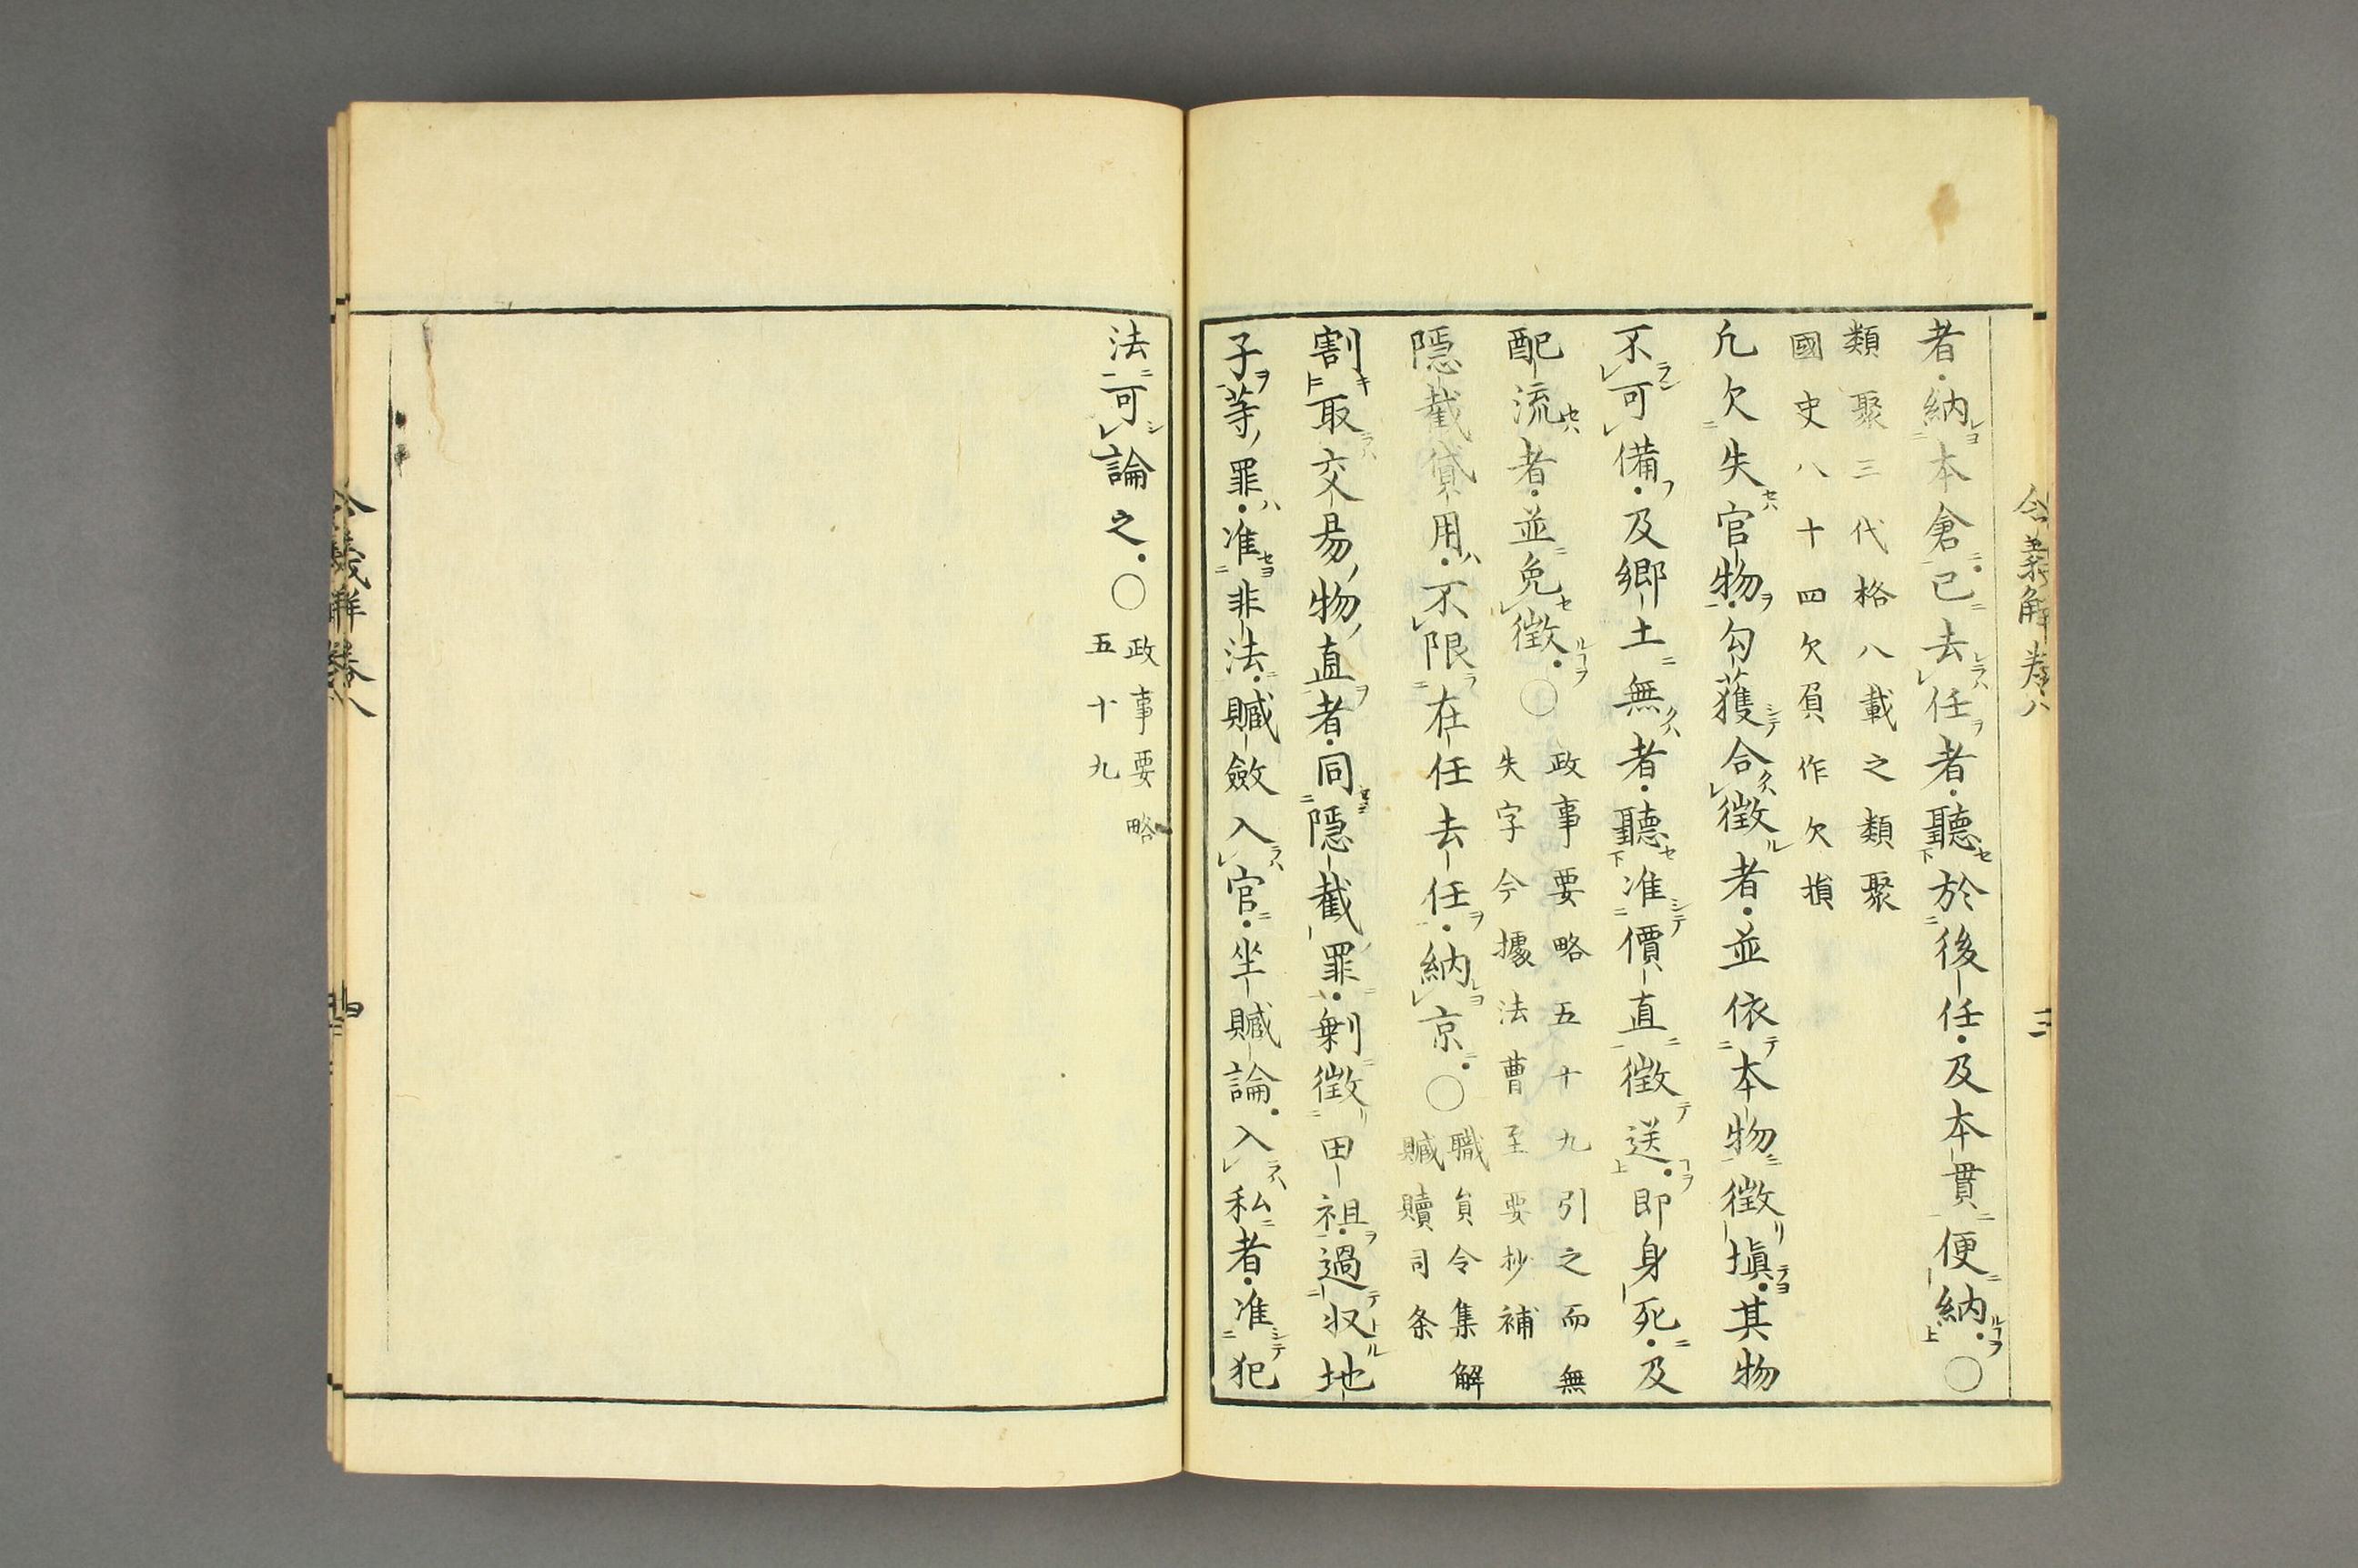 令義解卷八
三
者納本倉已去任者聽於後任及本貫便納〇
類聚三代格八載之類聚
國史八十四欠負作欠損
凢欠失官物勾獲合徴者並依本物徴塡其物
不可備及郷土無者聽准價直徴送即身死及
配流者並免徴〇
政事要略五十九引之而無
失字今據法曹至要抄補
隱截貸用不限在任去任納京〇
職員令集解
贓贖司条
割取交易物直者同隱截罪剰徴田租過収地
子等罪准非法贓斂入官坐贓論入私者准犯
法可論之〇
政事要略
五十九